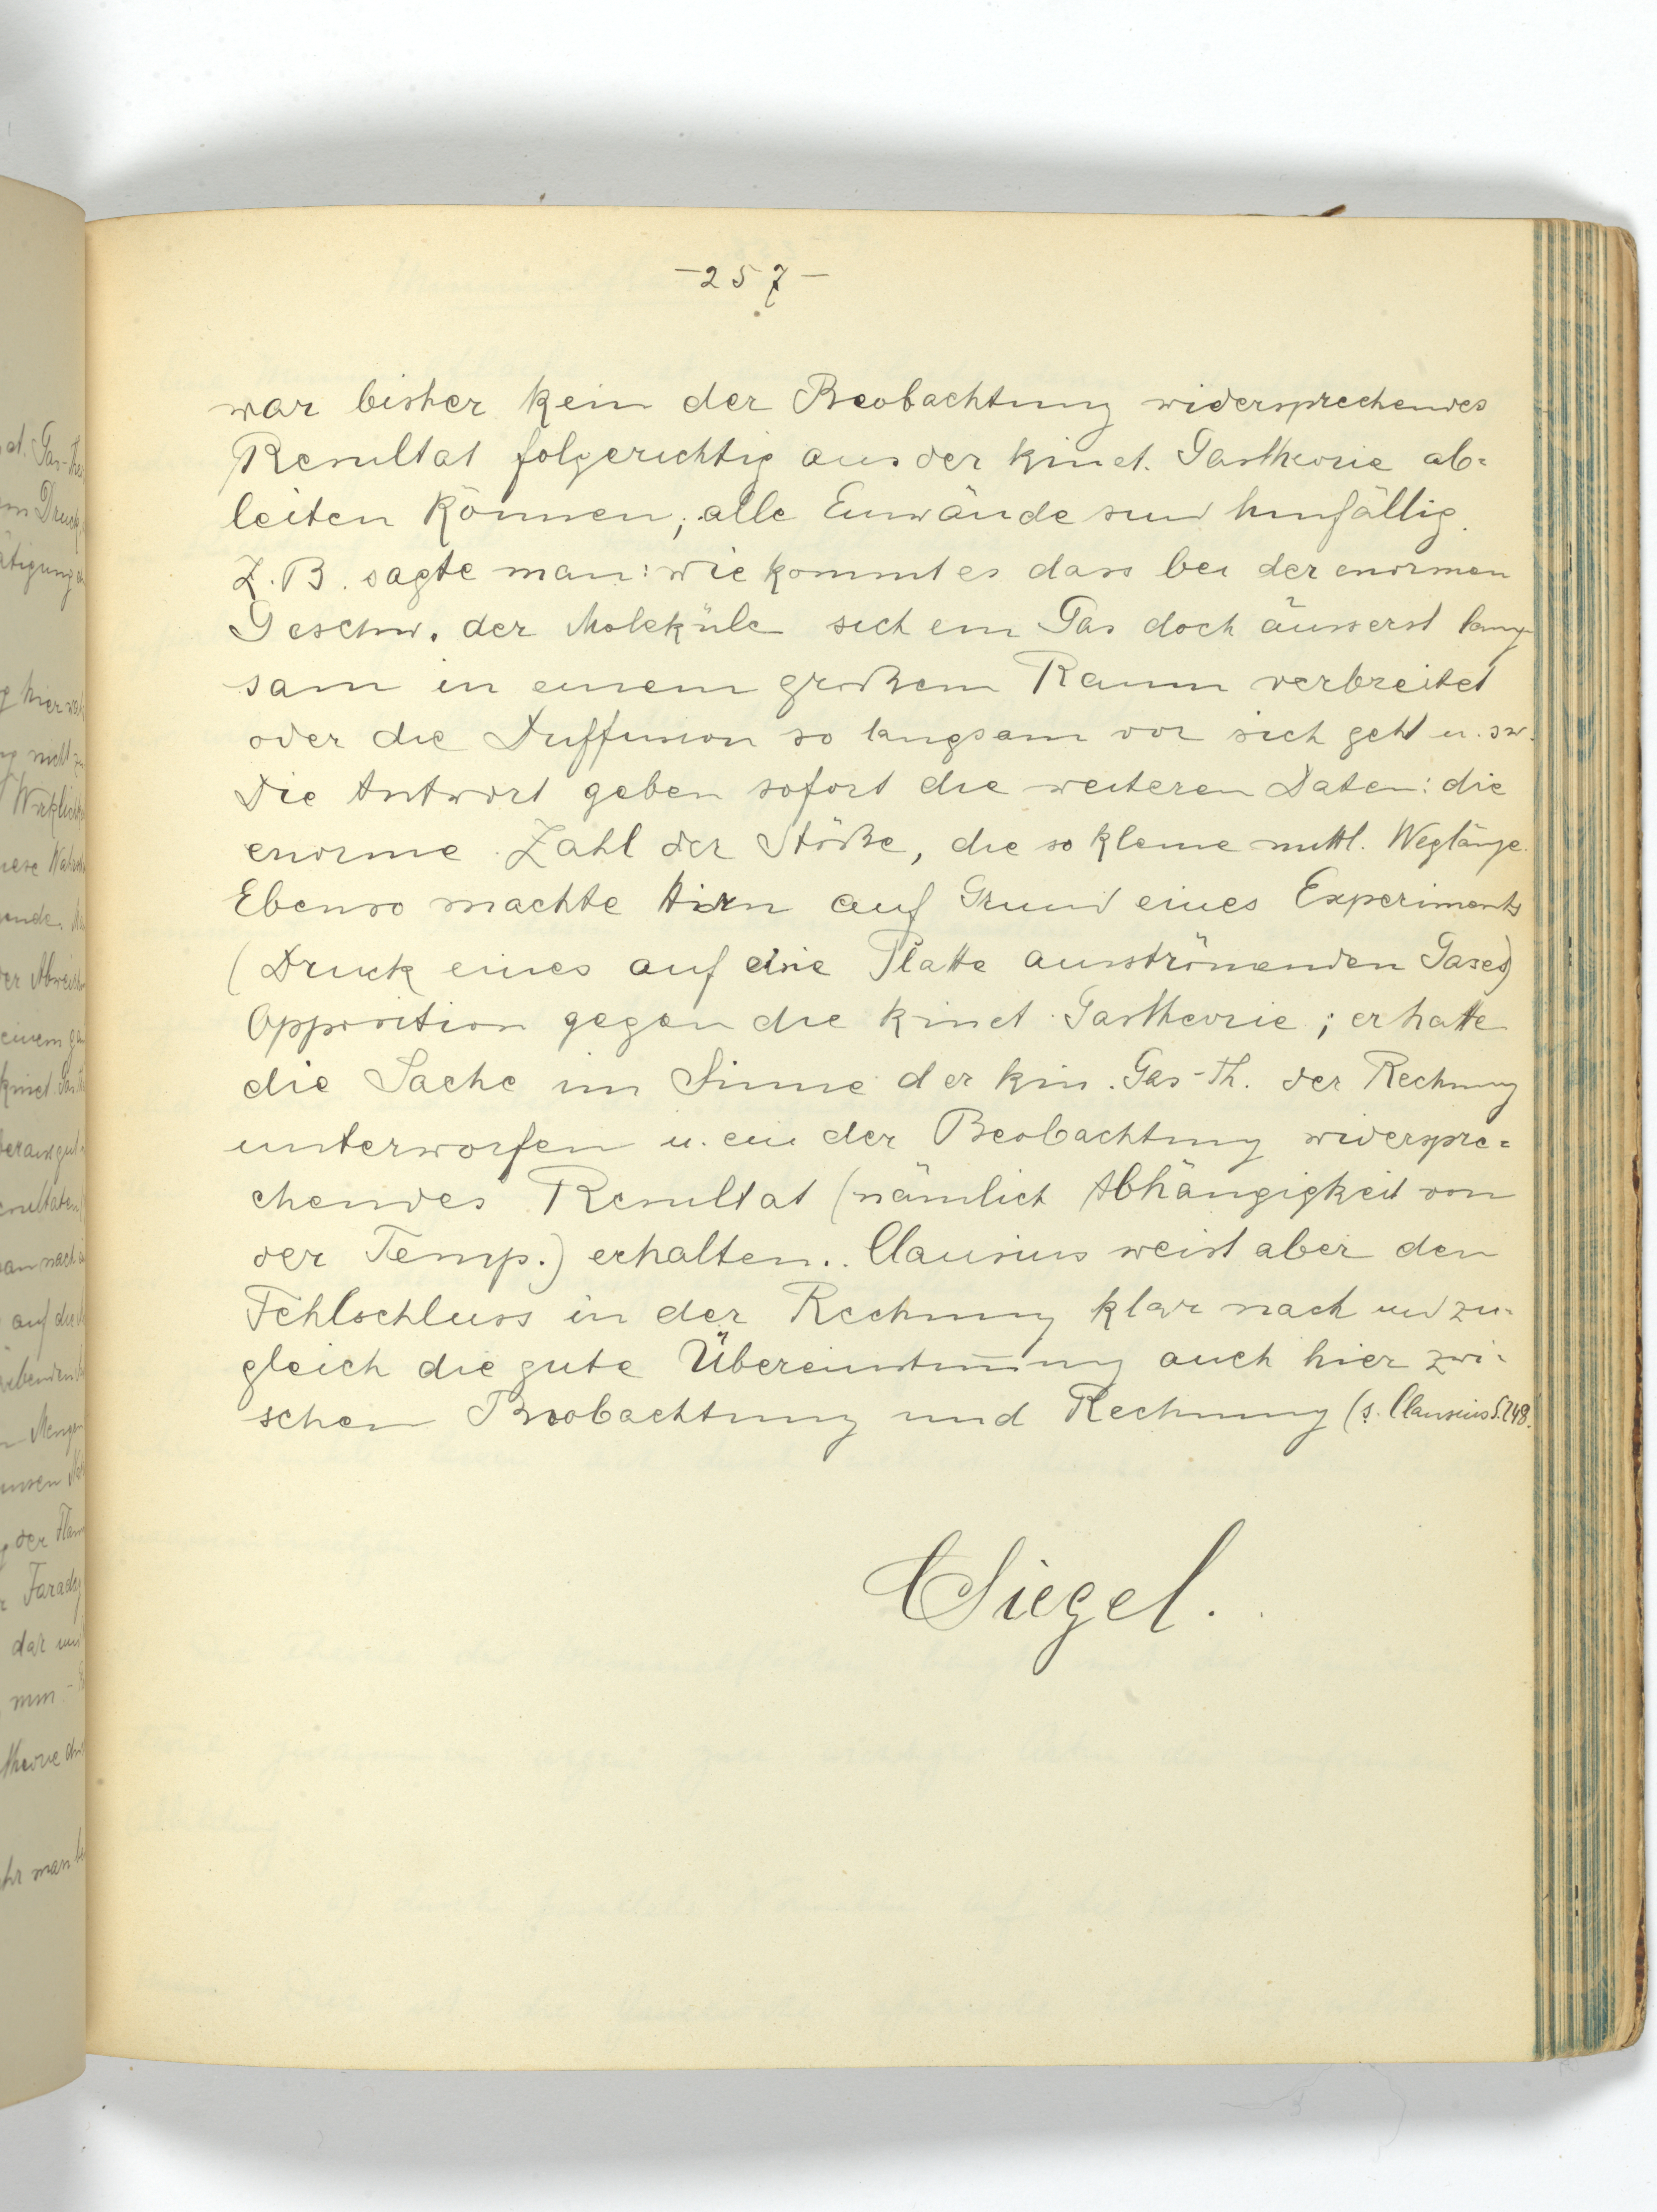 -257-
war bisher kein der Beobachtung widersprechendes
Resultat folgerichtig aus der kinet. Gastheorie ab=
leiten können; alle Einwände sind hinfällig.
Z.B. sagte man: wie kommt es dass bei der enormen
Geschw. der Moleküle sich ein Gas doch äusserst lang-
sam in einem großem Raum verbreitet
oder die Diffusion so langsam vor sich geht u.s.w.
Die Antwort geben sofort die weiteren Daten: die
enorme Zahl der Stöße, die so kleine mittl. Weglänge.
Ebenso machte Hirn auf Grund eines Experiments
(Druck eines auf eine Platte ausströmenden Gases)
Opposition gegen die kinet. Gastheorie; er hatte
die Sache im Sinne der kin. Gas-Th. der Rechnung
unterworfen u. ein der Beobachtung widerspre=
chendes Resultat (nämlich Abhängigkeit von
der Temp.) erhalten.. Clausius weist aber den
Fehlschluss in der Rechnung klar nach und zu-
gleich die gute Übereinstim̄ung auch hier zwi-
schen Beobachtung und Rechnung (s. Clausius S. 248.
CSiegel.